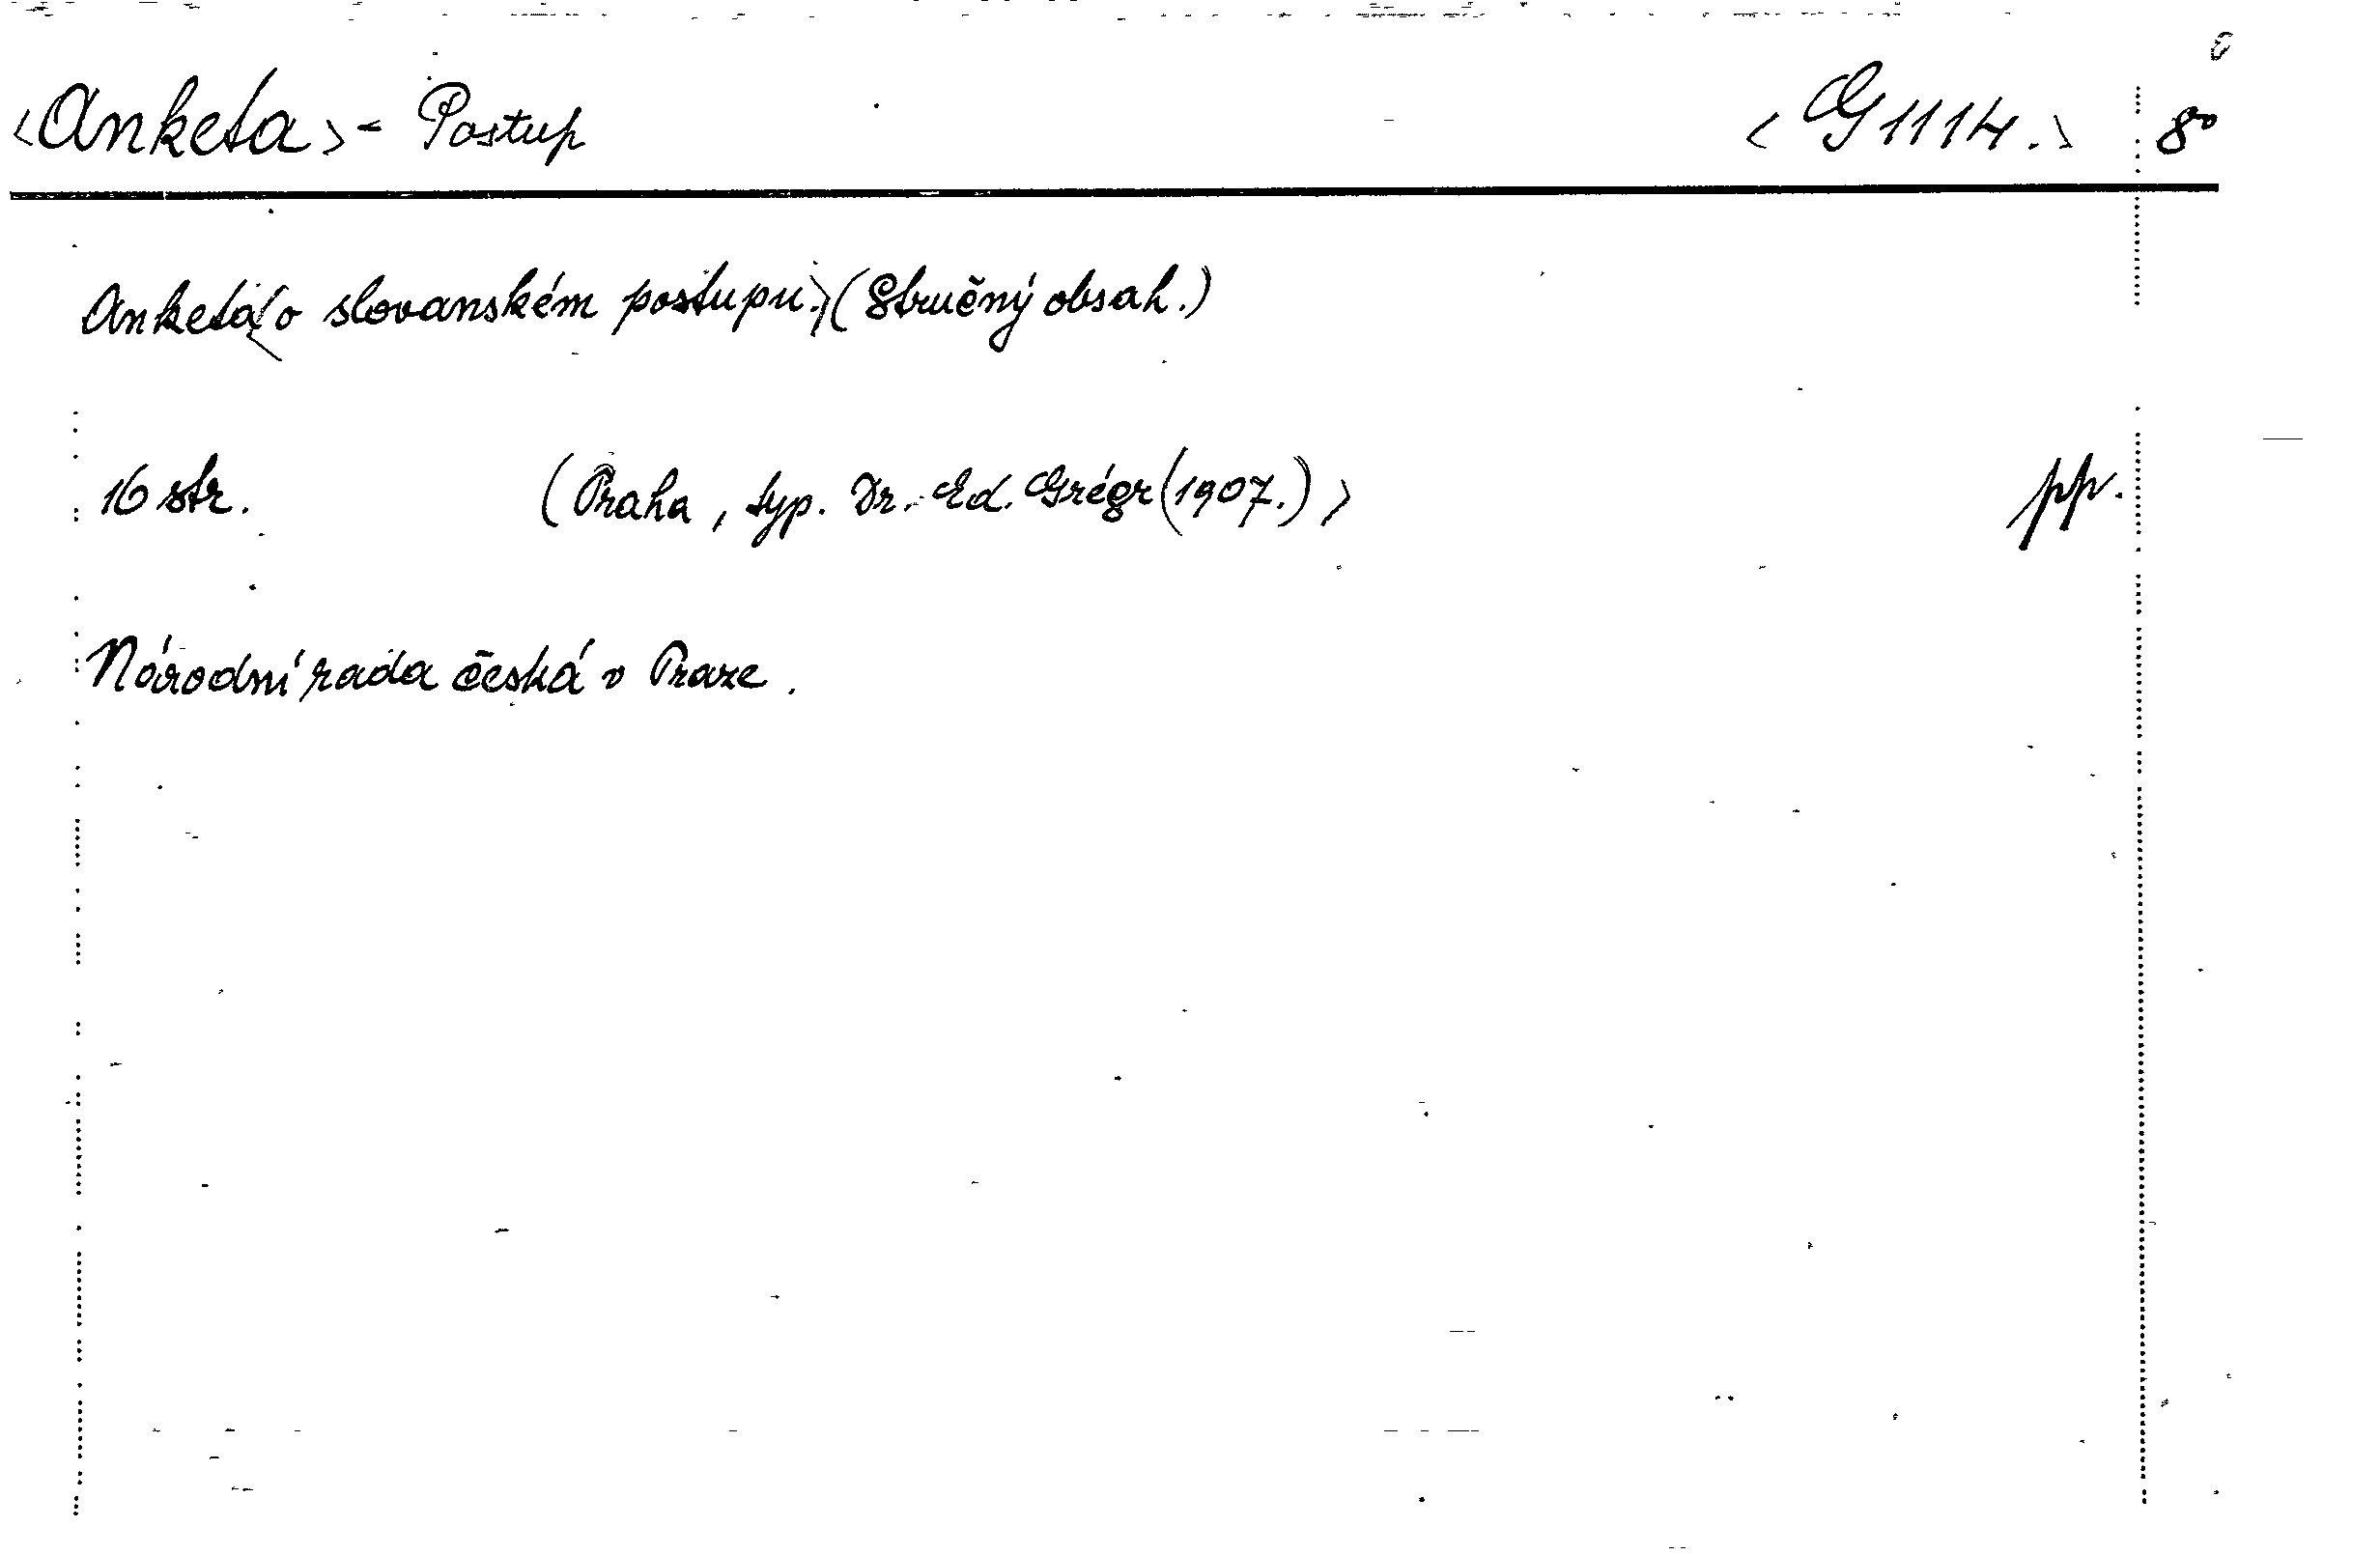 <Anketa> - Postup <G 1114.> 8°
Anketa <o slovanském postupu.> (Stručný obsah.)
16 str. (Praha, typ. Dr. Ed. Grégr (1907.)> pp.
Národní rada česká v Praze.